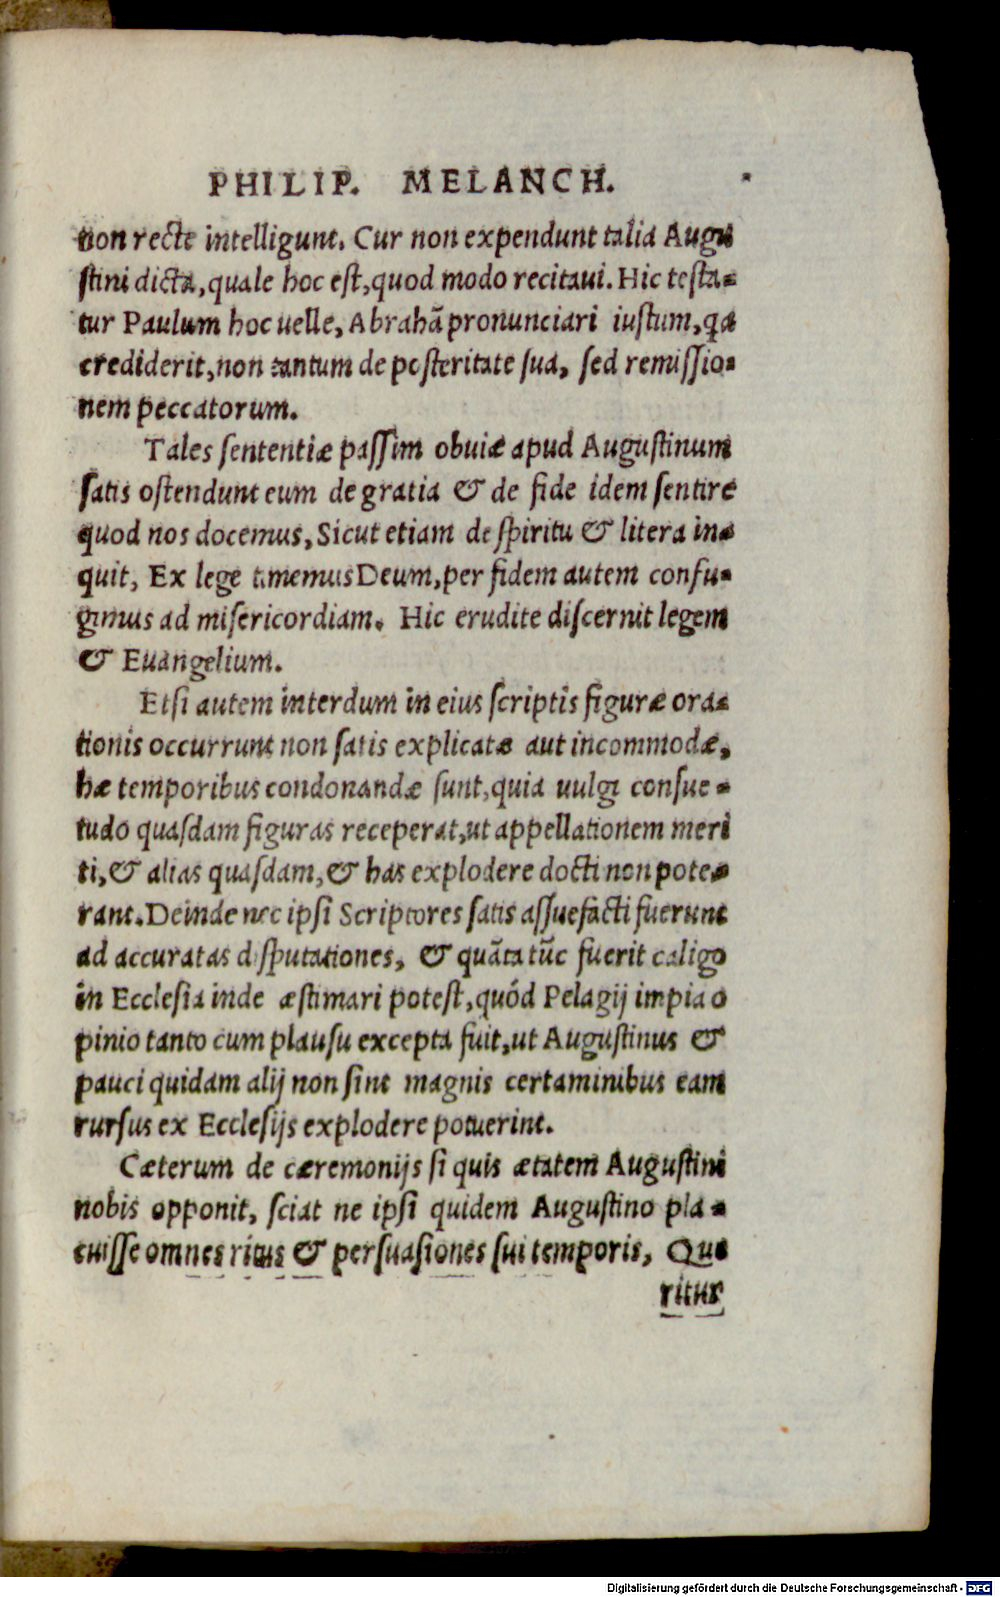 PHILIP. MELANCH.
non recte intelligunt. Cur non expendunt talia Augu
stini dicta, quale hoc est, quod modo recitaui. Hic testa-
tur Paulum hoc uelle, Abrahā pronunciari iustum, qa
crediderit, non tantum de posteritate sua, sed remissio-
nem peccatorum.
Tales sententiæ passim obuiæ apud Augustinum
satis ostendunt eum de gratia & de fide idem sentire
quod nos docemus, Sicut etiam de spiritu & litera in-
quit, Ex lege timemus Deum, per fidem autem confu-
gimus ad misericordiam. Hic erudite discernit legem
& Euangelium.
Etsi autem interdum in eius scriptis figuræ ora-
tionis occurrunt non satis explicatæ aut incommodæ,
hæ temporibus condonandæ sunt, quia uulgi consue-
tudo quasdam figuras receperat, ut appellationem meri
ti, & alias quasdam, & has explodere docti non pote-
rant. Deinde nec ipsi Scriptores satis assuefacti fuerunt
ad accuratas disputationes, & quāta tūc fuerit caligo
in Ecclesia inde æstimari potest, quód Pelagij impia o
pinio tanto cum plausu excepta fuit, ut Augustinus &
pauci quidam alij non sint magnis certaminibus eam
rursus ex Ecclesijs explodere potuerint.
Cæterum de cæremonijs si quis ætatem Augustini
nobis opponit, sciat ne ipsi quidem Augustino pla-
cuisse omnes ritus & persuasiones sui temporis, Que
ritur
Digitalisierung gefördert durch die Deutsche Forschungsgemeinschaft - DFG